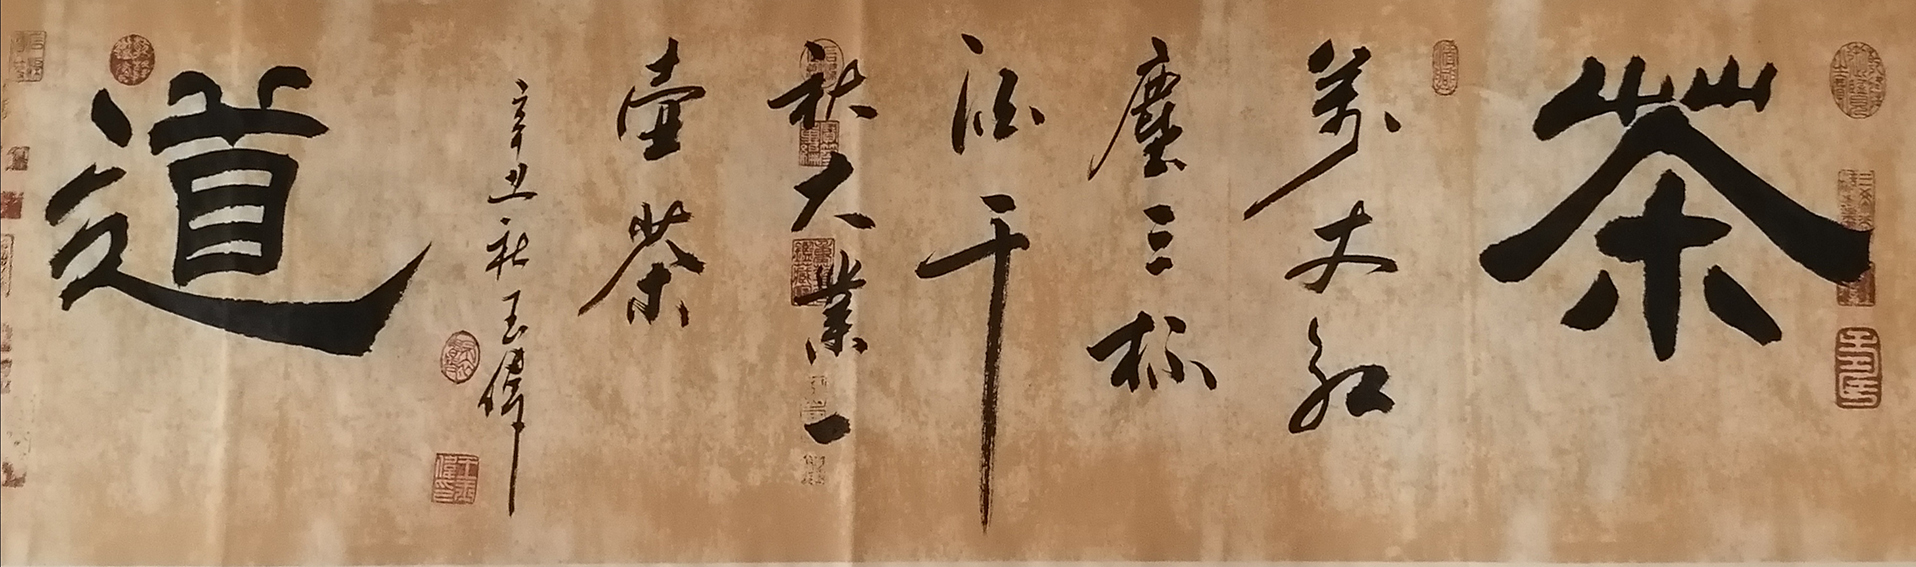 茶
萬丈紅
塵三杯
酒千
秋大業一
壺茶
辛丑秋玉偉
道